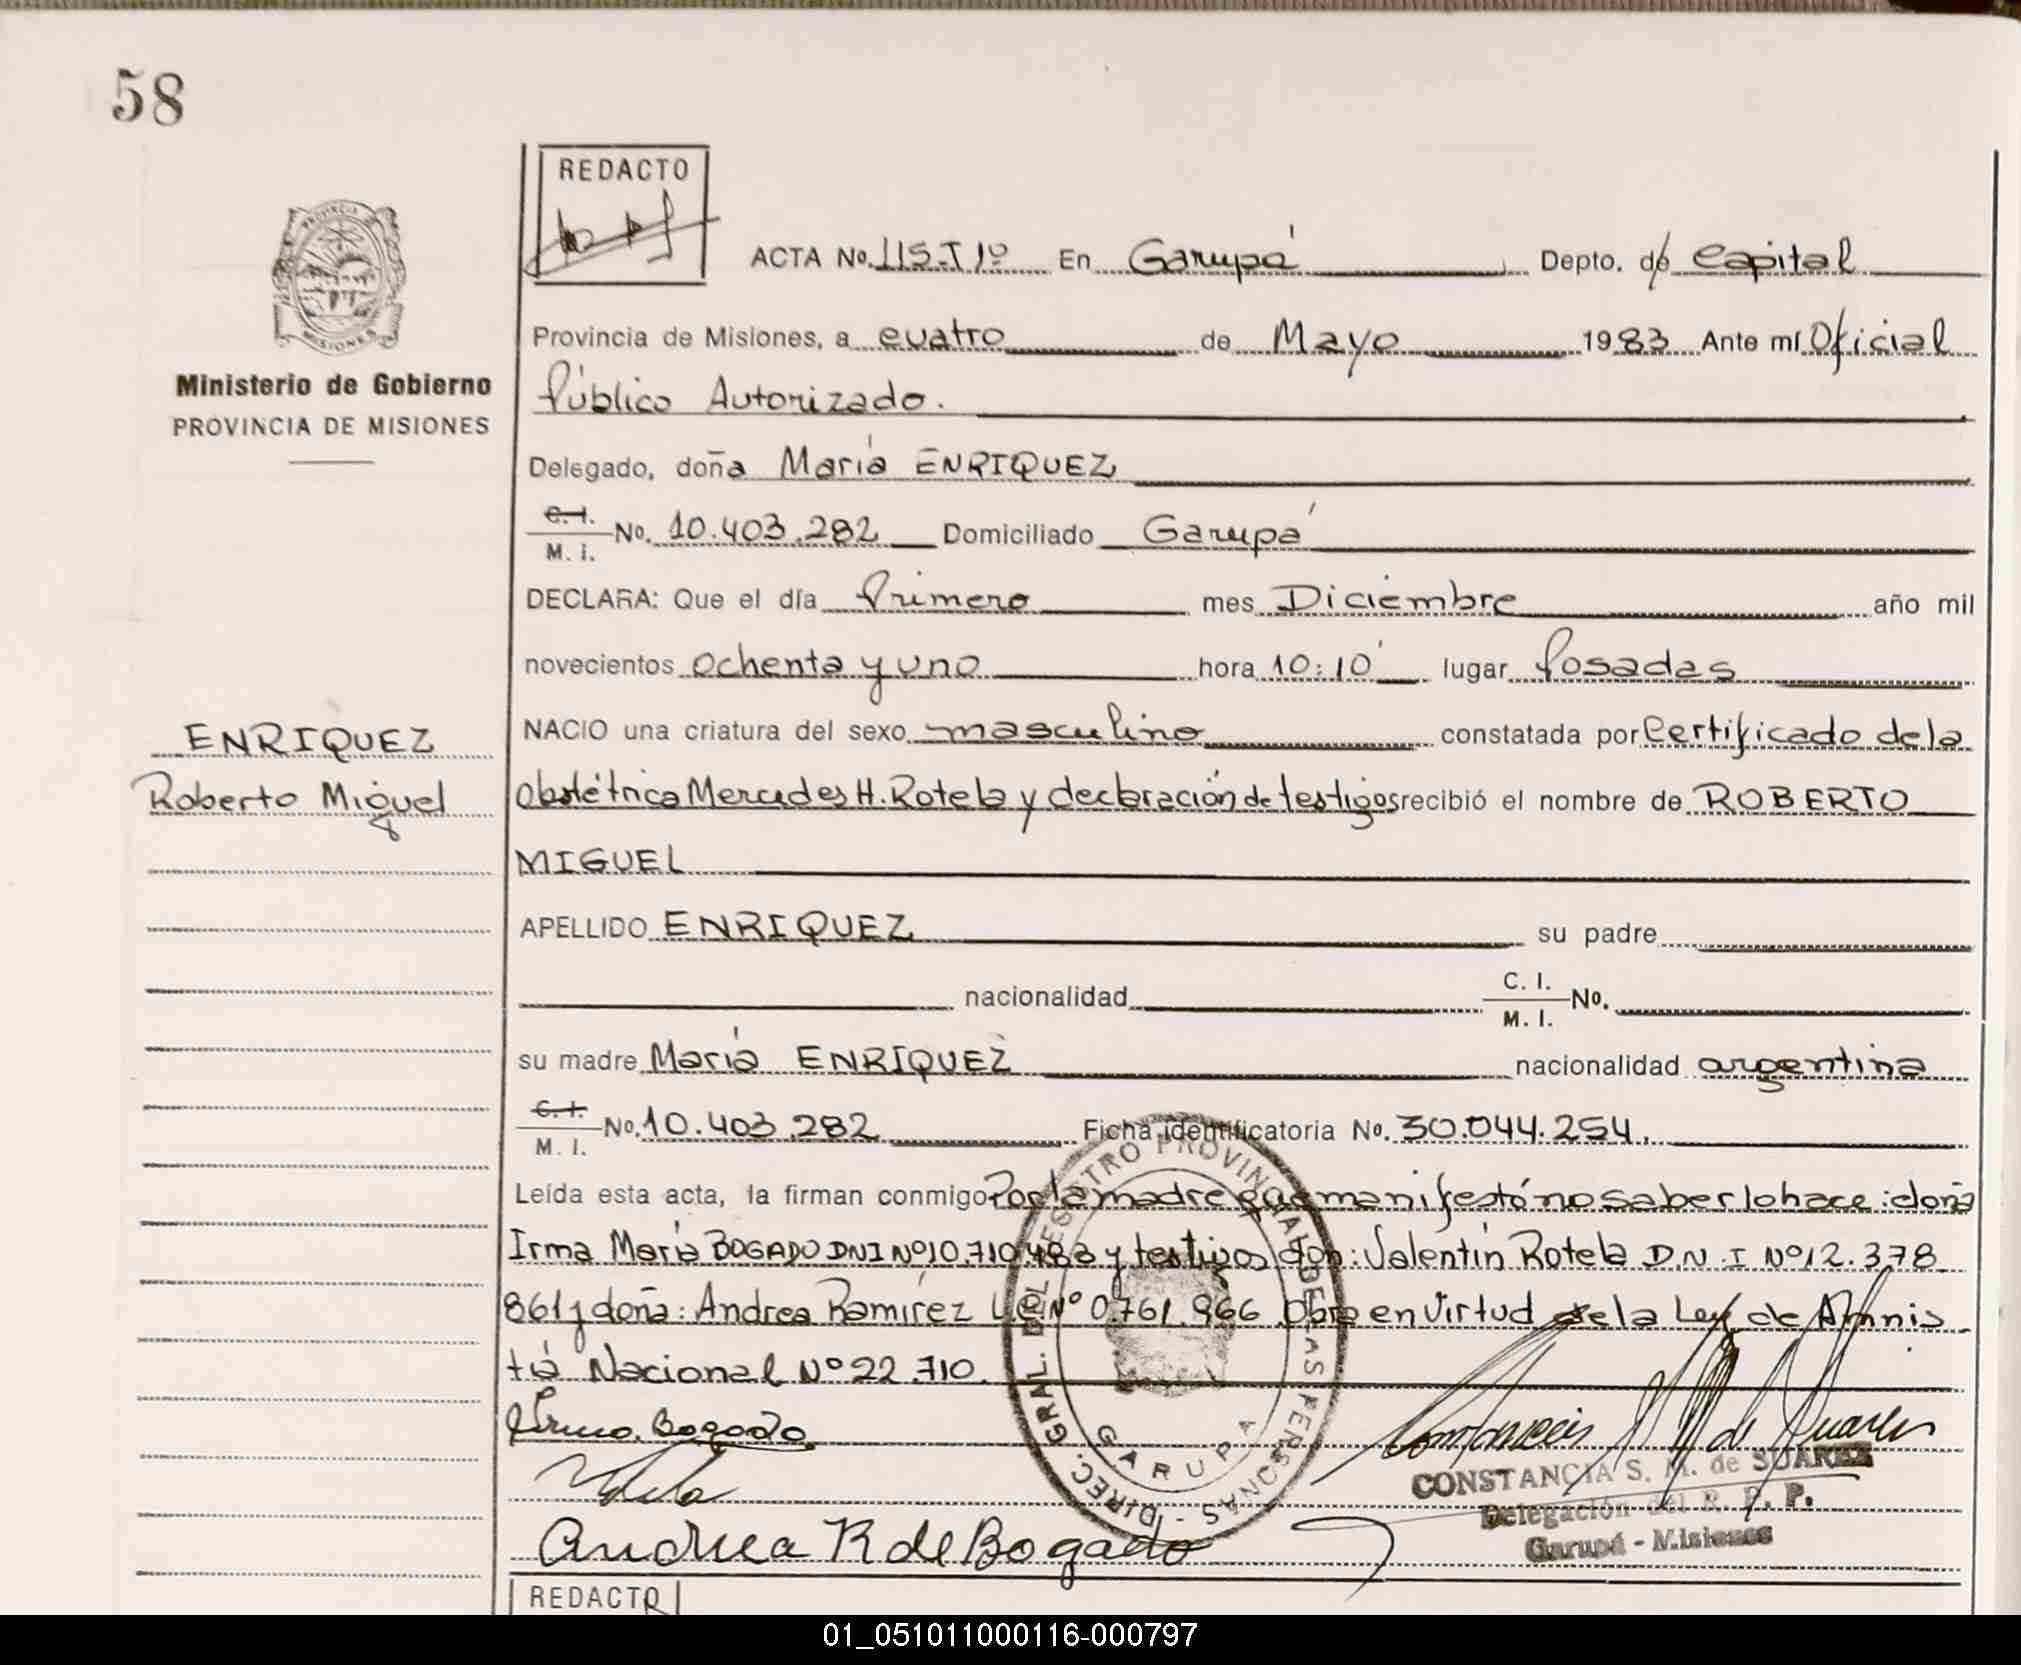 58
REDACTO
ACTA No. 115-T1º En Garupá Depto. de Capital
PROVINCIA DE
MISIONES
Ministerio de Gobierno
PROVINCIA DE MISIONES
Provincia de Misiones, a cuatro de Mayo 1983 Ante mí Oficial
Público Autorizado.
Delegado, doña María ENRIQUEZ
C. I.
M. I. No. 10.403.282 Domiciliado Garupá
DECLARA: Que el día Primero mes Diciembre año mil
novecientos ochenta y uno hora 10:10 lugar Posadas
ENRIQUEZ
Roberto Miguel
NACIO una criatura del sexo masculino constatada por Certificado de la
Obstétrica Mercedes H. Rotela y declaración de testigos recibió el nombre de ROBERTO
MIGUEL
APELLIDO ENRIQUEZ su padre
nacionalidad C. I.
M. I. No.
su madre María ENRIQUEZ nacionalidad argentina
C. I.
M. I. No. 10.403.282 Ficha identificatoria No. 30.044.254.
Leída esta acta, la firman conmigo Por la madre que manifestó no saber lo hace: doña
Irma María BOGADO DNI Nº10.710.483 y testigos don: Valentín Rotela D.N.I Nº12.378
861 y doña: Andrea Ramírez L.C Nº 0.761.966 Obra en virtud de la Ley de Amnis
tía Nacional Nº 22.710.
DIREC. GRAL. DEL REGISTRO PROVINCIAL DE LAS PERSONAS -
GARUPA
Irma Bogado
Rotela
Andrea R de Bogado
CONSTANCIA S. M. de SUAREZ
Delegación del R. P. P.
Garupá - Misiones
REDACTO
01_051011000116-000797